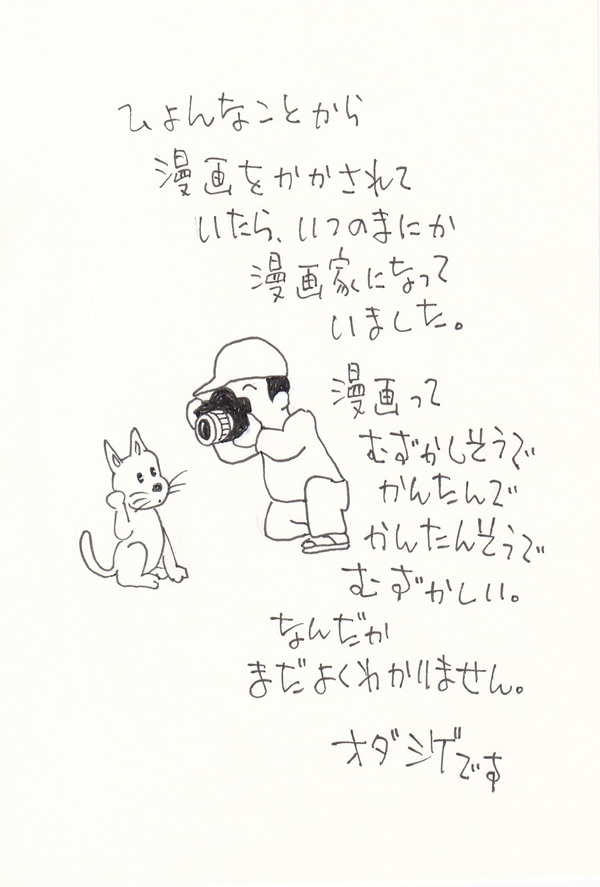 ひょんなことから
漫画をかかされて
いたら、いつのまにか
漫画家になって
いました。
漫画って
むずかしそうで
かんたんで
かんたんそうで
むずかしい。
なんだか
まだよくわかりません。
オダシゲです